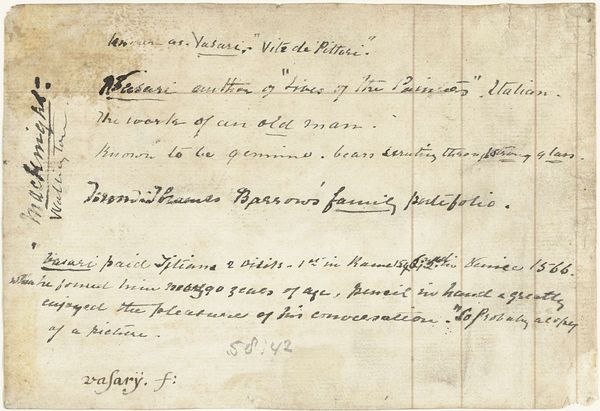 known as. Vasari. "Vite de Pittori".
Vasari author of "Lives of the Painters" Italian.
The work of an old man.
Known to be genuine. bears scrutiny through strong glass.
From Thomas Barrow's family portfolio.
"Vasari paid Titian 2 visits. 1st in Rome in Venice 1566.
he found him 90 years of age, pencil in hand & greatly
enjoyed the pleasure of his conversation." So Probably a copy
of a picture.
58:42
vasarÿ. f: